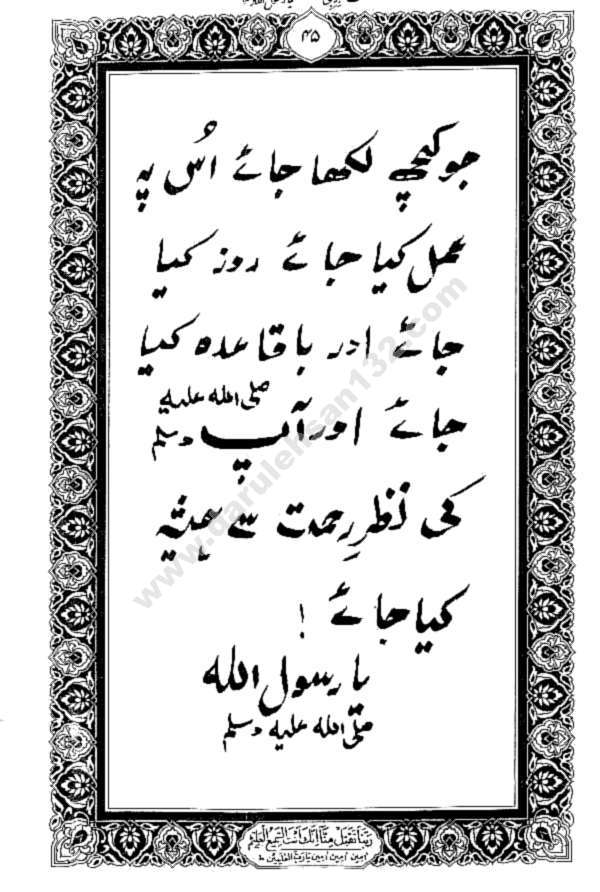 ۴۵
جو کچھ لکھا جائے اُس پہ
عمل کیا جائے روز کیا
جائے اور باقاعدہ کیا
جائے اور آپ صلی اللہ علیہ وسلم
کی نظرِ رحمت سے ہمیشہ
کیا جائے !
یا رسول اللہ
صلی اللہ علیہ وسلم
ربنا تقبل منا انک انت السمیع العلیم
امین امین امین یا رب العلمین
www.darulehsan132.com